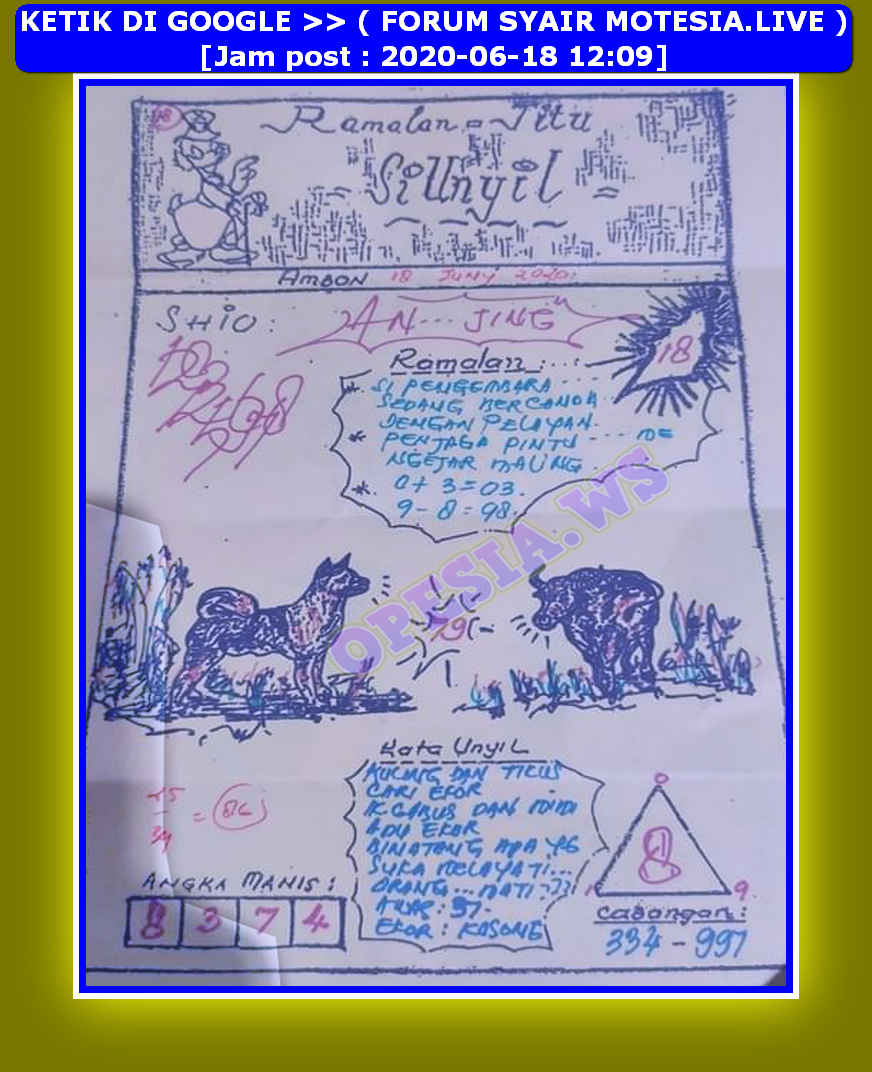 KETIK DI GOOGLE >> ( FORUM SYAIR MOTESIA.LIVE )
[Jam post : 2020-06-18 12:09]
18
Ramalan = Jitu
= SiUnyil =
AMBON 18 JUNY 2020
SHIO : AN... JING
18
Ramalan :
* SI PENGEMBARA ....
SEDANG BERCANDA
DENGAN PELAYAN.
* PENJAGA PINTU ---- ME
NGEJAR MALING
*. 0 + 3 = 03.
9 - 8 = 98.
OPESIA.WS
79
Kata Unyil
KUCING DAN TIKUS
CARI EKOR
DAN
ADU EKOR
BINATANG APA YG
SUKA MELAYATI...
ORANG... MATI???
EKOR : KOSONG
0
8
9
ANGKA MANIS :
8 3 7 4
Cadangan :
334 - 997